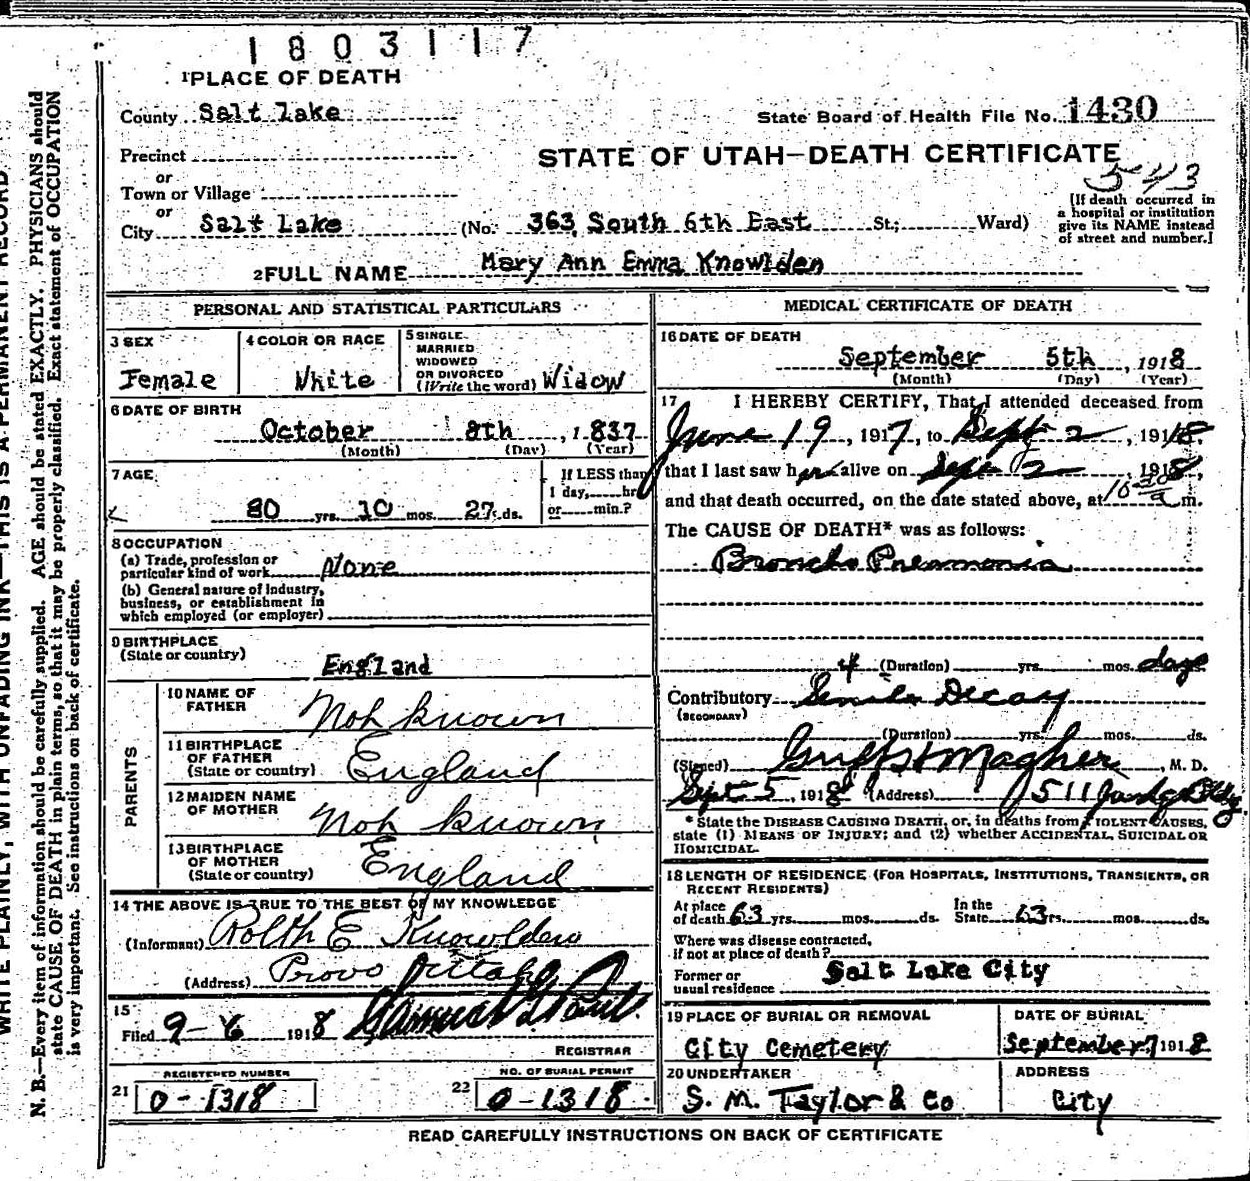 1803117
1 PLACE OF DEATH
County Salt Lake
State Board of Health File No. 1430
Precinct
STATE OF UTAH—DEATH CERTIFICATE
543
or
Town or Village
or
City Salt Lake (No. 363 South 6th East St.; Ward)
[If death occurred in
a hospital or institution
give its NAME instead
of street and number.]
2 FULL NAME Mary Ann Emma Knowlden
PERSONAL AND STATISTICAL PARTICULARS
3 SEX
Female
4 COLOR OR RACE
White
5 SINGLE
MARRIED
WIDOWED
OR DIVORCED
(Write the word) Widow
6 DATE OF BIRTH
October 8th, 1837
(Month) (Day) (Year)
7 AGE
80 yrs. 10 mos. 27 ds.
If LESS than
1 day, hr
or min.?
8 OCCUPATION
(a) Trade, profession or
particular kind of work None
(b) General nature of industry,
business, or establishment in
which employed (or employer)
9 BIRTHPLACE
(State or country)
England
PARENTS
10 NAME OF
FATHER
Not known
11 BIRTHPLACE
OF FATHER
(State or country) England
12 MAIDEN NAME
OF MOTHER
Not known
13 BIRTHPLACE
OF MOTHER
(State or country) England
14 THE ABOVE IS TRUE TO THE BEST OF MY KNOWLEDGE
(Informant) E Knowlden
(Address) Provo Utah
15
Filed 9-6 1918
REGISTRAR
REGISTERED NUMBER
21 0-1318
NO. OF BURIAL PERMIT
22 0-1318
MEDICAL CERTIFICATE OF DEATH
16 DATE OF DEATH
September 5th, 1918
(Month) (Day) (Year)
17 I HEREBY CERTIFY, That I attended deceased from
June 19, 1917, to Sept 2, 1918,
that I last saw her alive on Sept 2, 1918,
and that death occurred, on the date stated above, at 10-30 a m.
The CAUSE OF DEATH* was as follows:
Broncho Pneumonia
4 (Duration) yrs. mos. days
Contributory Senile Decay
(SECONDARY)
(Duration) yrs. mos. ds.
(Signed) M. D.
Sept 5, 1918 (Address) 511 Judge Bldg.
* State the DISEASE CAUSING DEATH, or, in deaths from VIOLENT CAUSES,
state (1) MEANS OF INJURY; and (2) whether ACCIDENTAL, SUICIDAL OR
HOMICIDAL.
18 LENGTH OF RESIDENCE (FOR HOSPITALS, INSTITUTIONS, TRANSIENTS, OR
RECENT RESIDENTS)
At place
of death 63 yrs. mos. ds.
In the
State 63 rs. mos. ds.
Where was disease contracted,
if not at place of death?
Former or
usual residence Salt Lake City
19 PLACE OF BURIAL OR REMOVAL
City Cemetery
DATE OF BURIAL
September 7 1918
20 UNDERTAKER
S. M. Taylor & Co
ADDRESS
City
READ CAREFULLY INSTRUCTIONS ON BACK OF CERTIFICATE
WRITE PLAINLY, WITH UNFADING INK—THIS IS A PERMANENT RECORD
N. B.—Every item of information should be carefully supplied. AGE should be stated EXACTLY. PHYSICIANS should
state CAUSE OF DEATH in plain terms, so that it may be properly classified. Exact statement of OCCUPATION
is very important. See instructions on back of certificate.